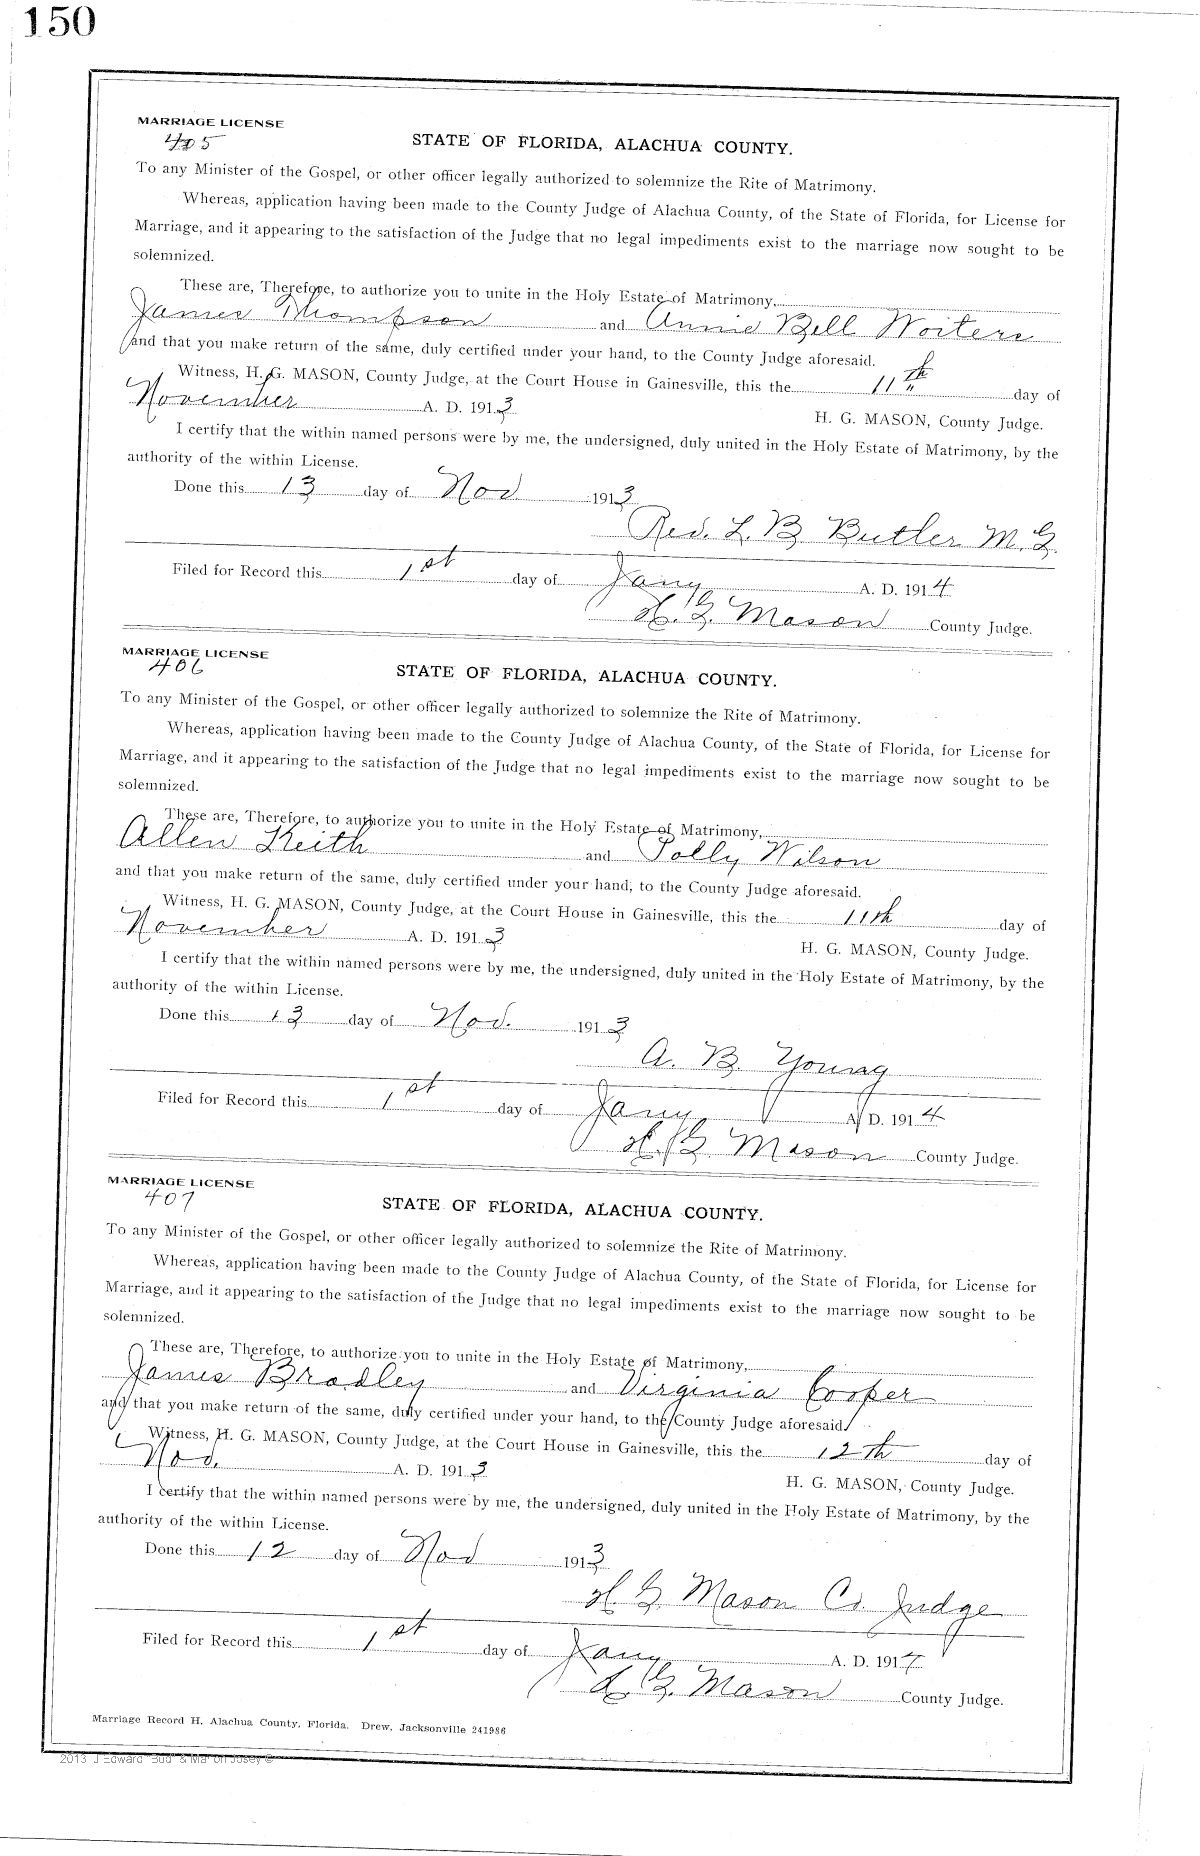 150
MARRIAGE LICENSE
405
STATE OF FLORIDA, ALACHUA COUNTY.
To any Minister of the Gospel, or other officer legally authorized to solemnize the Rite of Matrimony.
Whereas, application having been made to the County Judge of Alachua County, of the State of Florida, for License for
Marriage, and it appearing to the satisfaction of the Judge that no legal impediments exist to the marriage now sought to be
solemnized.
These are, Therefore, to authorize you to unite in the Holy Estate of Matrimony,
James Thompson and Annie Bell Woiters
and that you make return of the same, duly certified under your hand, to the County Judge aforesaid.
Witness, H. G. MASON, County Judge, at the Court House in Gainesville, this the 11th day of
November A. D. 1913
H. G. MASON, County Judge.
I certify that the within named persons were by me, the undersigned, duly united in the Holy Estate of Matrimony, by the
authority of the within License.
Done this 13 day of Nov 1913
Rev. L. B Butler M. G.
Filed for Record this 1st day of Jany A. D. 1914
H. G. Mason County Judge.
MARRIAGE LICENSE
406
STATE OF FLORIDA, ALACHUA COUNTY.
To any Minister of the Gospel, or other officer legally authorized to solemnize the Rite of Matrimony.
Whereas, application having been made to the County Judge of Alachua County, of the State of Florida, for License for
Marriage, and it appearing to the satisfaction of the Judge that no legal impediments exist to the marriage now sought to be
solemnized.
These are, Therefore, to authorize you to unite in the Holy Estate of Matrimony,
Allen Keith and Polly Wilson
and that you make return of the same, duly certified under your hand, to the County Judge aforesaid.
Witness, H. G. MASON, County Judge, at the Court House in Gainesville, this the 11th day of
November A. D. 1913
H. G. MASON, County Judge.
I certify that the within named persons were by me, the undersigned, duly united in the Holy Estate of Matrimony, by the
authority of the within License.
Done this 13 day of Nov. 1913
A. B. Young
Filed for Record this 1st day of Jany A. D. 1914
H. G. Mason County Judge.
MARRIAGE LICENSE
407
STATE OF FLORIDA, ALACHUA COUNTY.
To any Minister of the Gospel, or other officer legally authorized to solemnize the Rite of Matrimony.
Whereas, application having been made to the County Judge of Alachua County, of the State of Florida, for License for
Marriage, and it appearing to the satisfaction of the Judge that no legal impediments exist to the marriage now sought to be
solemnized.
These are, Therefore, to authorize you to unite in the Holy Estate of Matrimony,
James Bradley and Virginia Cooper
and that you make return of the same, duly certified under your hand, to the County Judge aforesaid.
Witness, H. G. MASON, County Judge, at the Court House in Gainesville, this the 12th day of
Nov. A. D. 1913
H. G. MASON, County Judge.
I certify that the within named persons were by me, the undersigned, duly united in the Holy Estate of Matrimony, by the
authority of the within License.
Done this 12 day of Nov 1913
H. G. Mason Co. Judge
Filed for Record this 1st day of Jany A. D. 1914
H. G. Mason County Judge.
Marriage Record H, Alachua County, Florida. Drew, Jacksonville 241986
2013 J Edward "Bud" & Marion Josey ©